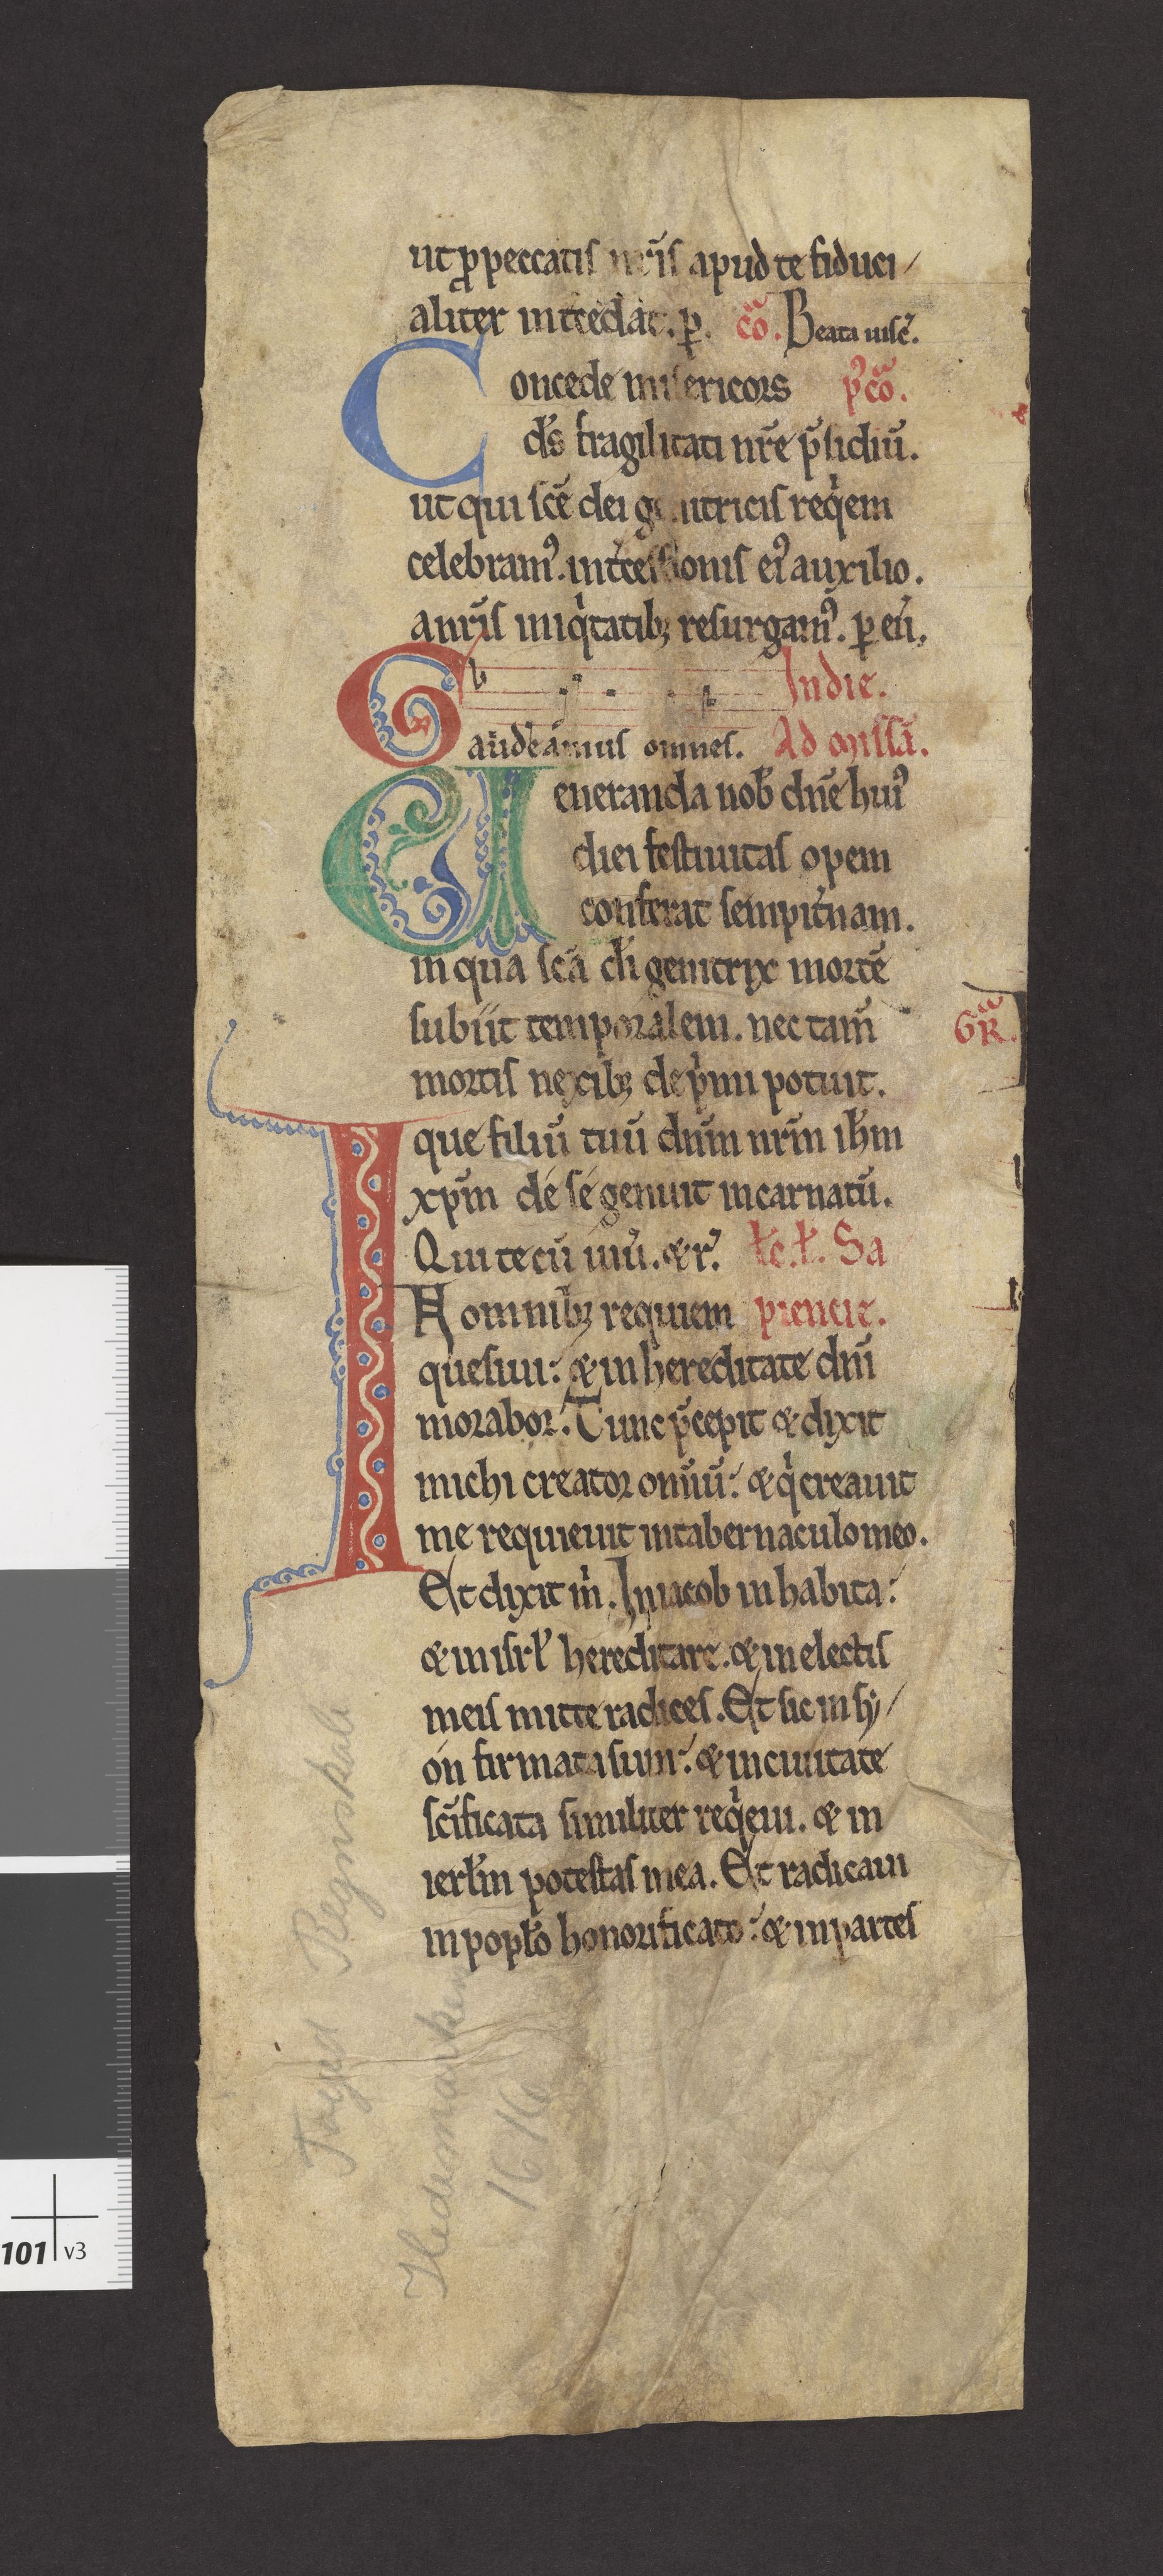 ut ꝓpeccatis nr̄is apud te fiduci/
aliter int̄cedat. ꝑ. cō. Beata uisc̄.
Concede misericors p̾cō.
ds̄ fragilitati nr̄e p̄sidiū.
ut qui sc̄e dei genitricis reqͥem
celebram᾽. int̄cessionis ei᾽ auxilio.
anr̄is iniqͥtatibꝫ resurgam᾽. ꝑ eū.
In die.
Gaudeamus omnes. Ad missā.
Ueneranda nob̄ dn̄e hui᾽
diei festiuitas opem
conferat sempit̄nam.
in qua sc̄a di genitrix mortē
subiit temporalem. nec tam̄
GR̄.
mortis nexibꝫ depͥmi potuit.
que filiū tuū dn̄m nr̄m ih̄m
xp̄m de se genuit incarnatū.
Qui tecū uiū. ⁊ r᾽. łc. ł. Sa
In omnibꝫ requiem piencie.
quesiui: ⁊ in hereditate dn̄i
morabor. Tunc p̄cepit ⁊ dixit
michi creator om̄iū: ⁊ qͥ creauit
me requieuit in tabernaculo meo.
Et dixit m̄. In iacob inhabita:
⁊ in isrł hereditare. ⁊ in electis
meis mitte radices. Et sic in sy/
on firmata sum: ⁊ in ciuitate
sc̄ificata similiter reqͥeui. ⁊ in
ierłm potestas mea. Et radicaui
in popło honorificato: ⁊ in partes
Foged Regnskab
Hedemarken
1616